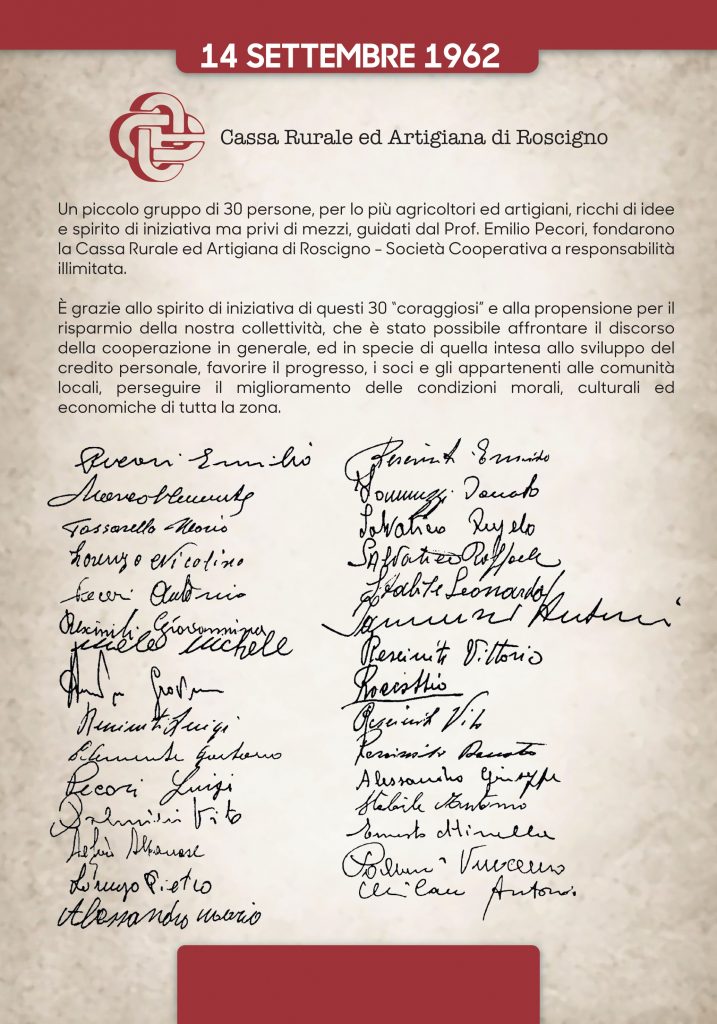 14 SETTEMBRE 1962
Cassa Rurale ed Artigiana di Roscigno
Un piccolo gruppo di 30 persone, per lo più agricoltori ed artigiani, ricchi di idee
e spirito di iniziativa ma privi di mezzi, guidati dal Prof. Emilio Pecori, fondarono
la Cassa Rurale ed Artigiana di Roscigno - Società Cooperativa a responsabilità
illimitata.
È grazie allo spirito di iniziativa di questi 30 "coraggiosi" e alla propensione per il
risparmio della nostra collettività, che è stato possibile affrontare il discorso
della cooperazione in generale, ed in specie di quella intesa allo sviluppo del
credito personale, favorire il progresso, i soci e gli appartenenti alle comunità
locali, perseguire il miglioramento delle condizioni morali, culturali ed
economiche di tutta la zona.
Pecori Emilio
Marco Clemente
Tassarello Mario
Lorenzo Nicolino
Pecori Antonio
Resciniti Giovannina
Michele
Resciniti Luigi
Clemente Gaetano
Pecori Luigi
Palmieri Vito
Lorenzo Pietro
Alessandro Mario
Resciniti
Iannuzzi Donato
Salvatico Angelo
Salvatico Raffaele
Stabile Leonardo
Iannuzzi Antonio
Resciniti Vittorio
Resciniti Vito
Resciniti Donato
Alessandro Giuseppe
Stabile Antonio
Ernesto Minella
Vincenzo
Antonio